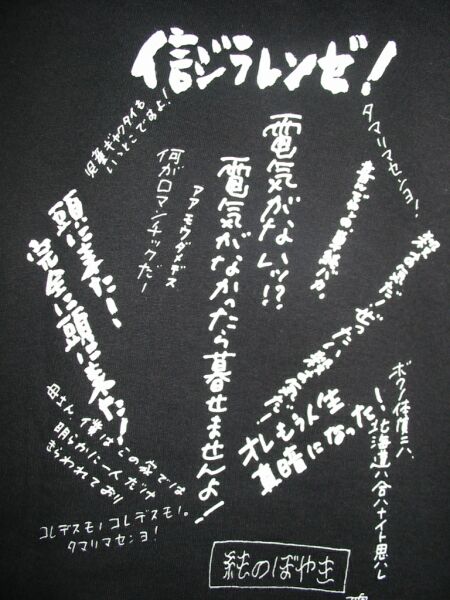 信ジラレンゼ!
タマリマセンヨ!
児童ギャクタイも
いいとこですよ!
電気がないッ!?
電気がなかったら暮せませんよ!
何がロマンチックだー
アアモウダメデス
頭に来た!
完全に頭に来た!
殺てるぞ、ぜったい殺てるぞ!
オレもう人生
真暗になった
ボクノ体質ニハ、
北海道ハ合ハナイト思ハレ
母さん、僕はこの家では
明らかに一人だけ
きらわれており
コレデスモノコレデスモノ。
タマリマセンヨ!
純のぼやき